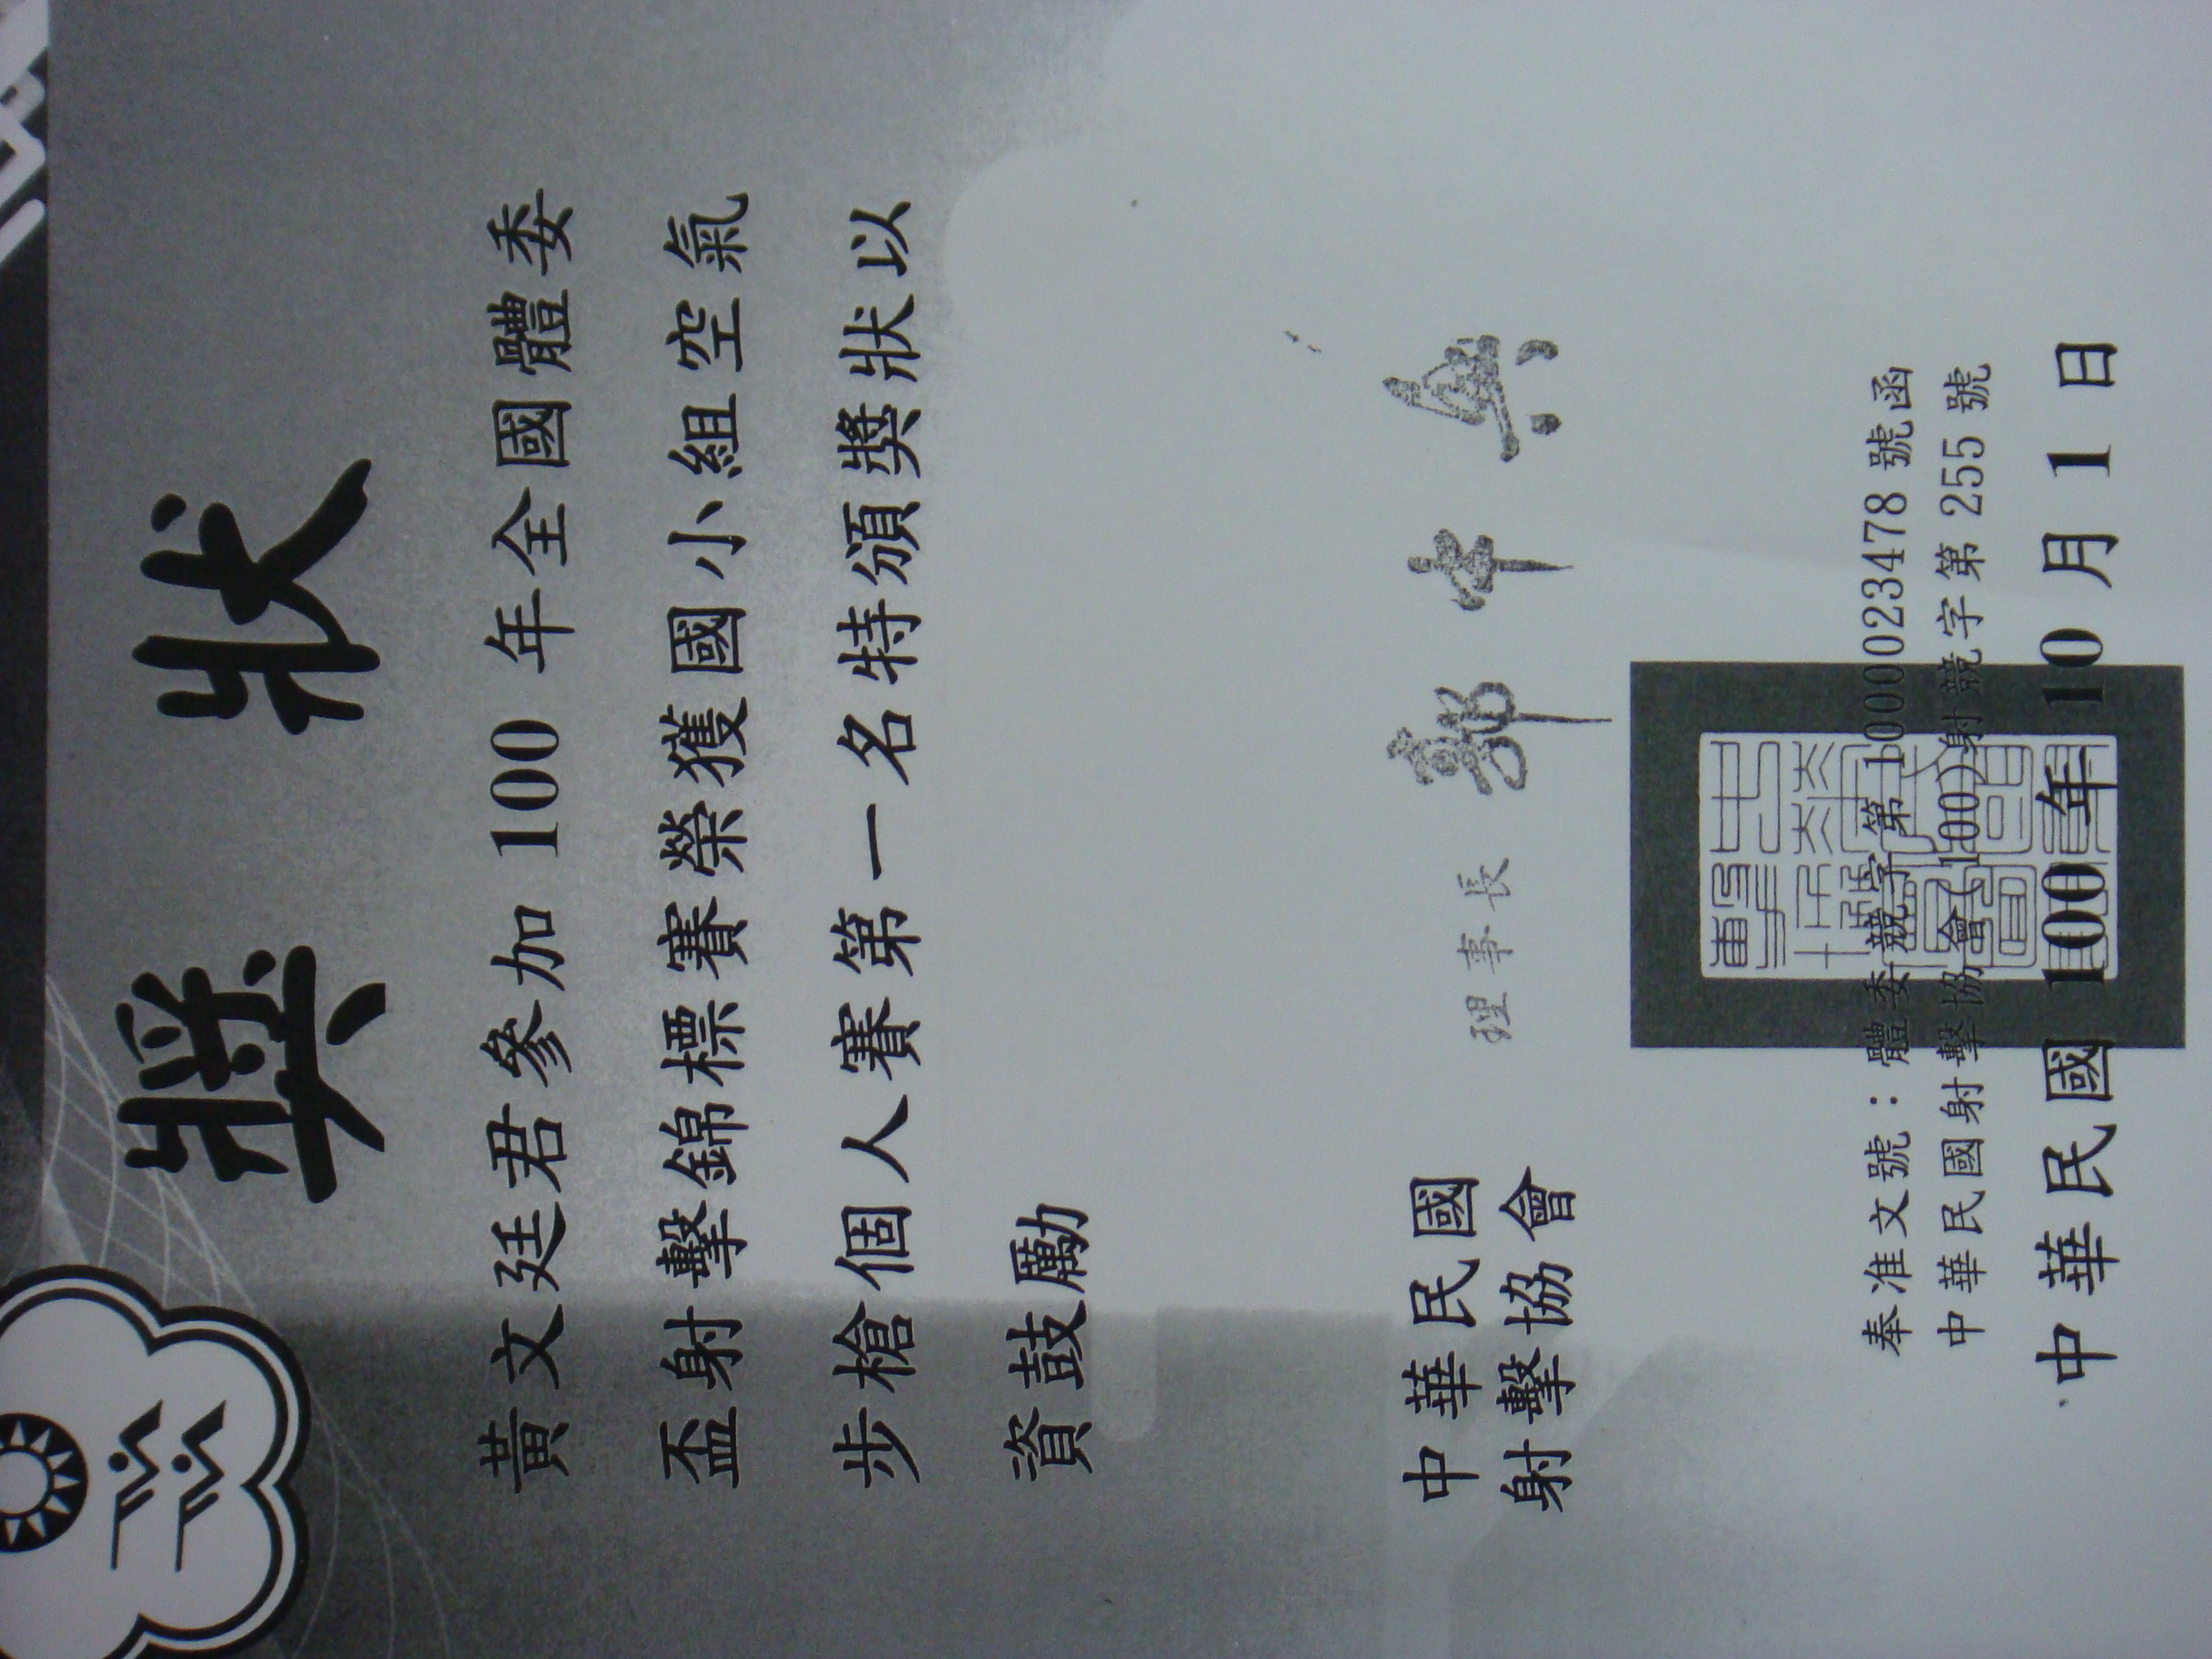 獎狀
黃文廷君參加 100 年全國體委
盃射擊錦標賽榮獲國小組空氣
步槍個人賽第一名特頒獎狀以
資鼓勵
中華民國
射擊協會
理事長
奉准文號：體委競字第 1000023478 號函
中華民國射擊協會(100)射競字第 255 號
中華民國 100 年 10 月 1 日